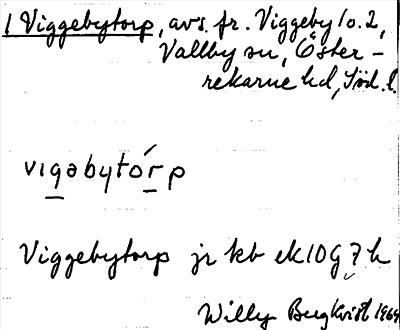 1 Viggebytorp, avs. fr. Viggeby 1 o. 2,
Vallby sn, Öster-
rekarne hd, Söd. l.
vıgəbytórp
Viggebytorp jr kb ek 10G 7 h
Willy Bergkvist 1964